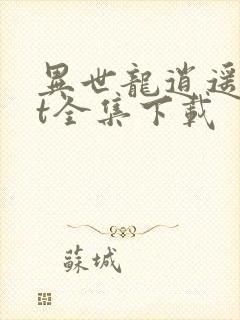 異世龍逍遙
t全集下載
蘇城